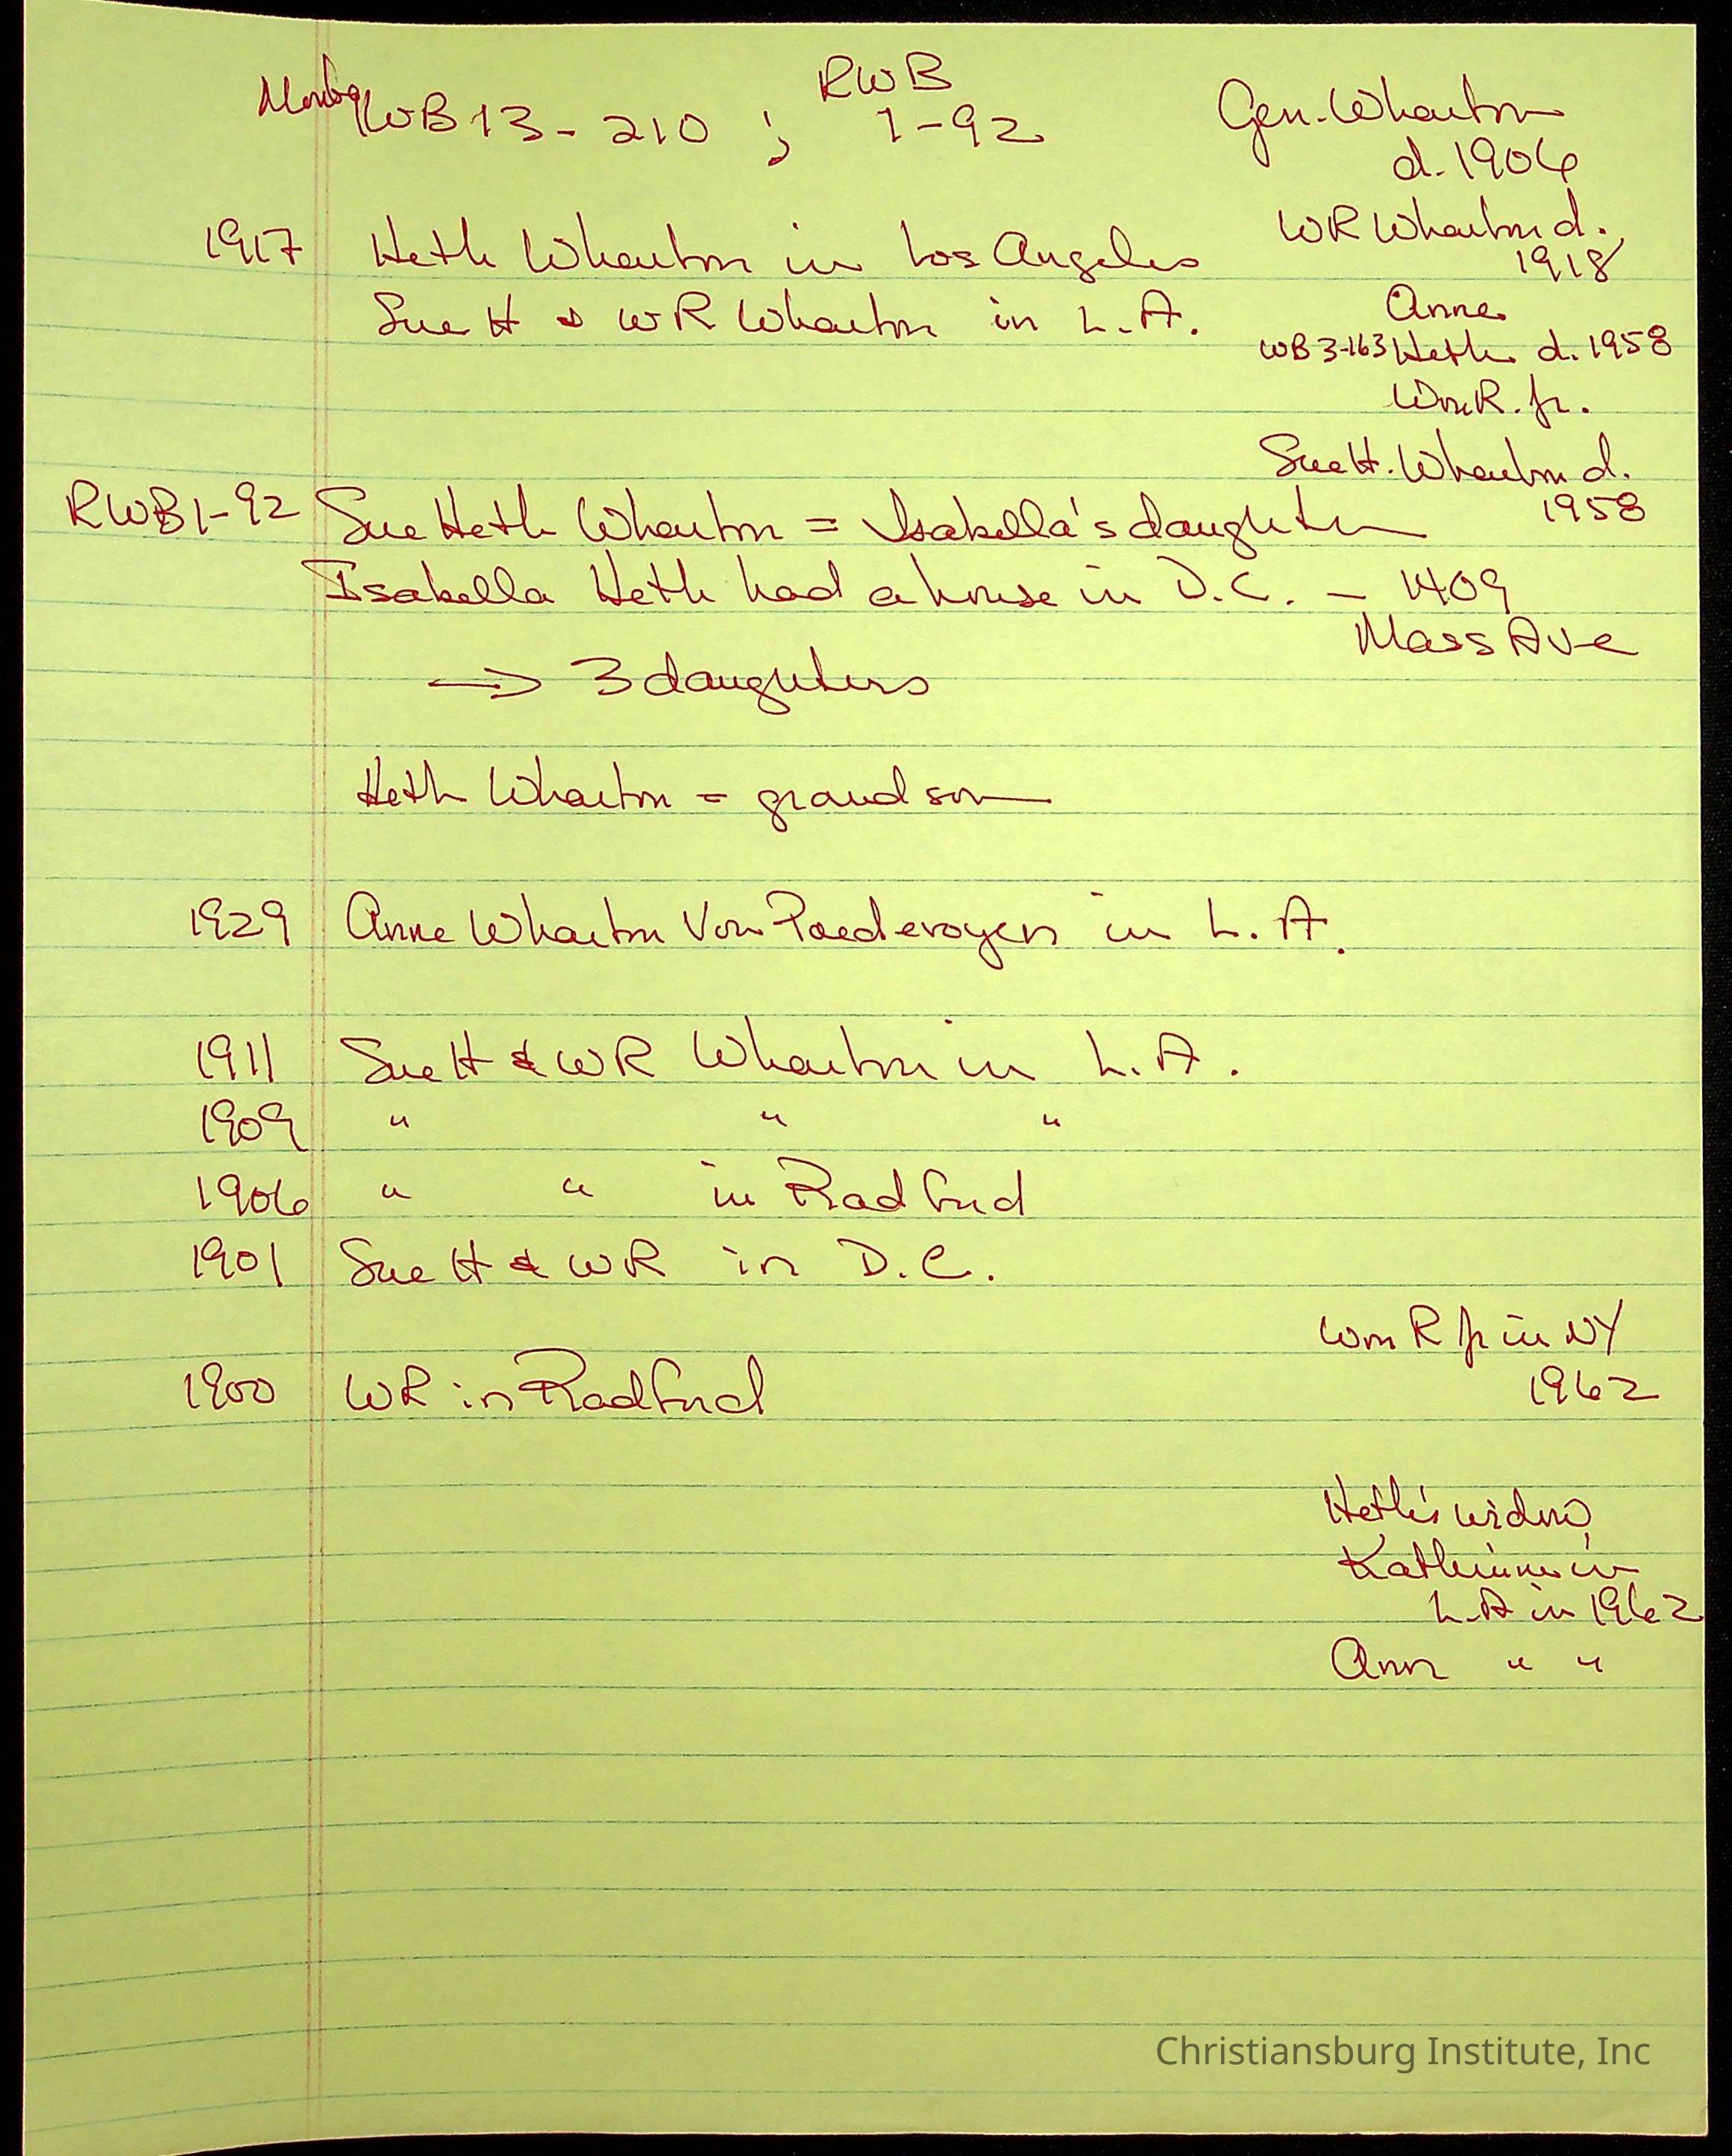 RWB
WB 13-210 ; 1-92
Gen. Wharton
d. 1906
WR Wharton d.
1918
1917 Heth Wharton in Los Angeles
Sue H & WR Wharton in L.A.
Anne
WB 3-163 Heth d. 1958
Wm R. Jr.
Sue H. Wharton d.
1958
RWB 1-92 Sue Heth Wharton = Isabella's daughter
Isabella Heth had a house in D.C. - 1409
Mass Ave
→ 3 daughters
Heth Wharton = grandson
1929 Anne Wharton Von in L.A.
1911 Sue H & WR Wharton in L.A.
1909 " " "
1906 " " in Radford
1901 Sue H & WR in D.C.
Wm R Jr in NY
1962
1900 WR in Radford
Heth's widow,
Katherine in
L.A in 1962
Ann " "
Christiansburg Institute, Inc